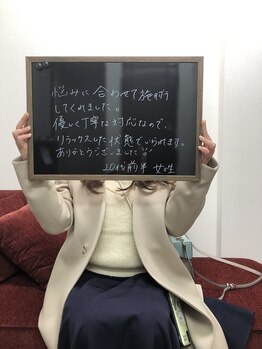 悩みに合わせて施術
してくれました。
優しく丁寧な対応なので、
リラックスした状態でいられます。
ありがとうございました
20代前半 女性